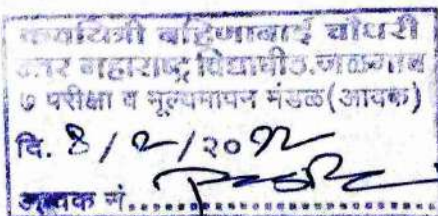 कवयित्री बहिणाबाई चौधरी
उत्तर महाराष्ट्र विद्यापीठ.जळगाव
७ परीक्षा व मूल्यमापन मंडळ(आवक)
दि. / /२०
आवक नं.